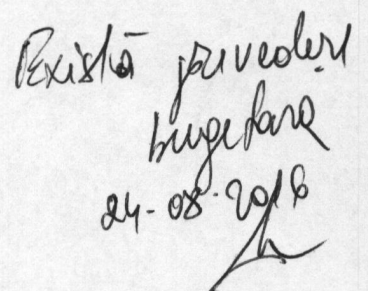 Există prevederi
bugetară
24-08-2016